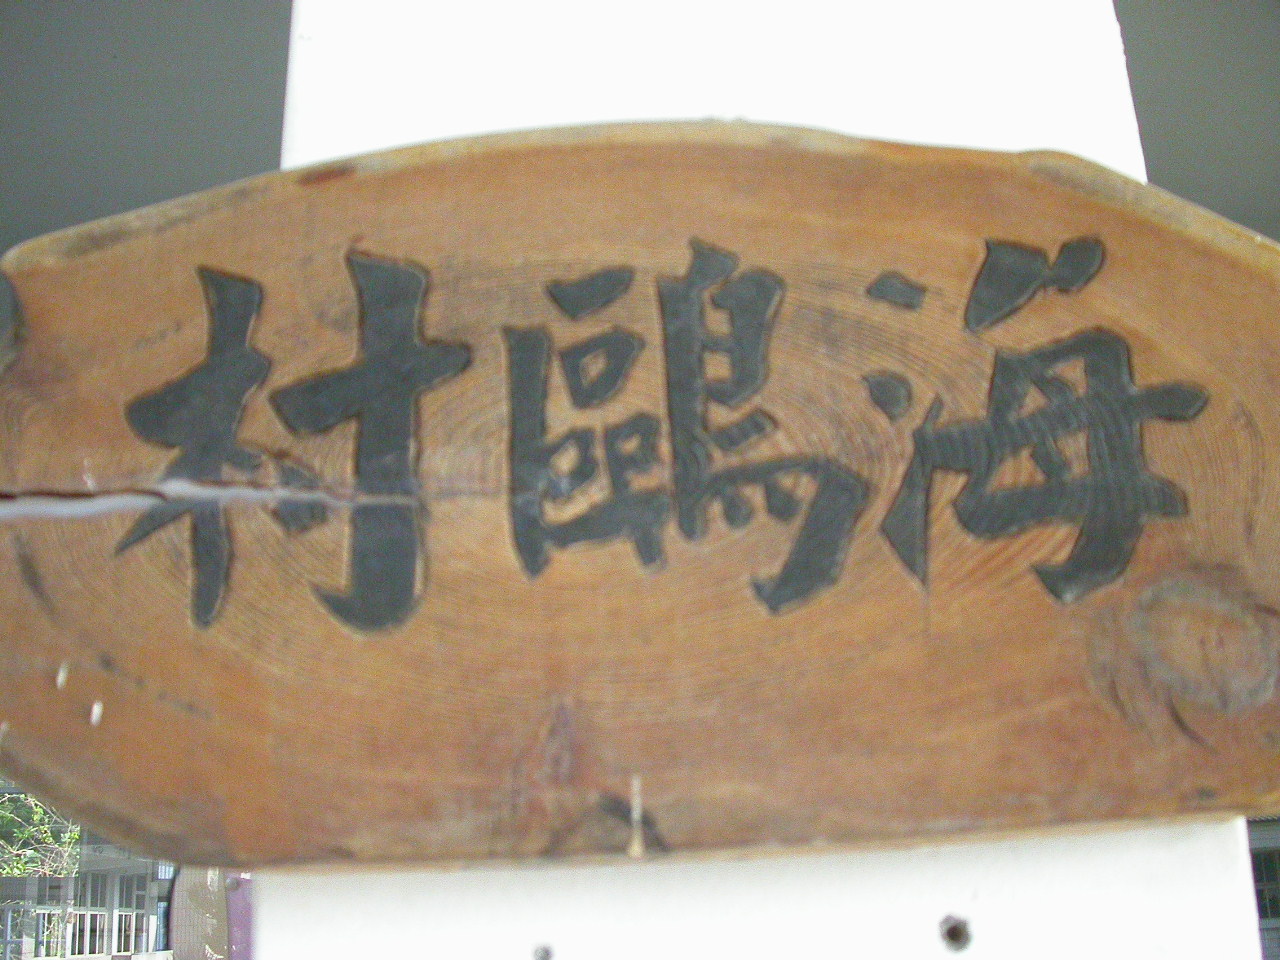 海鷗村